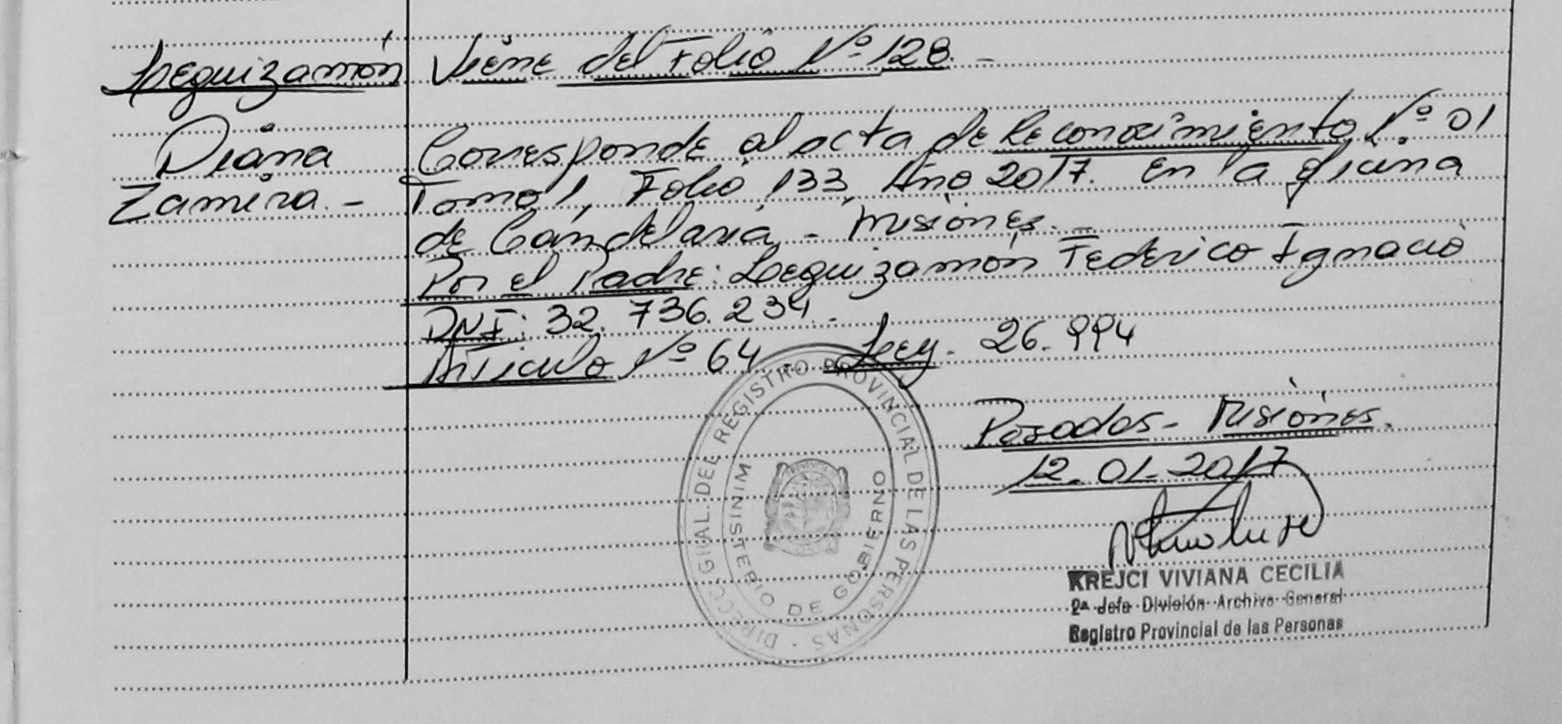 Leguizamón
Diana
Zamira.-
Viene del Folio Nº 128.-
Corresponde al acta de Reconocimiento Nº 01
Tomo 1, Folio 133, Año 2017. En la oficina
de Candelaria - Misiones.-
Por el Padre: Leguizamón Federico Ignacio
DNI: 32.736.234.
Articulo Nº 64. Ley. 26.994
Posadas - Misiones.
12.01.2017
DIRECC. GRAL. DEL REGISTRO PROVINCIAL DE LAS PERSONAS
MINISTERIO DE GOBIERNO
KREJCI VIVIANA CECILIA
2ª Jefe División Archivo General
Registro Provincial de las Personas